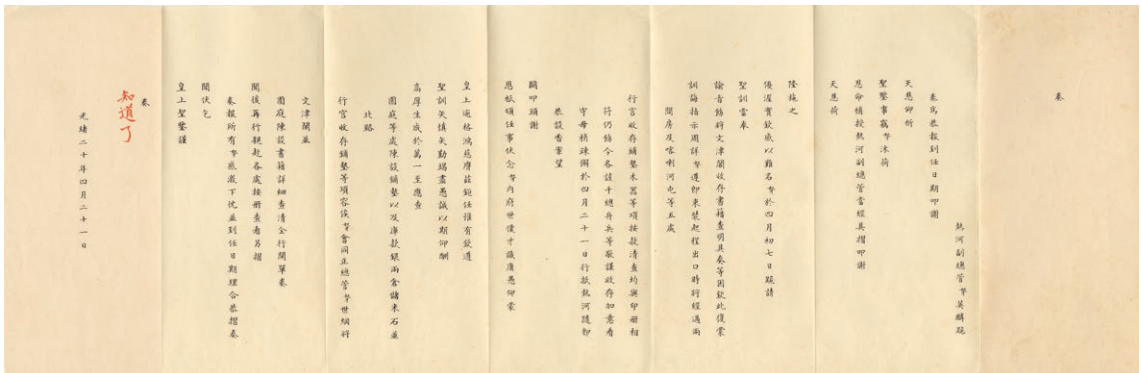 奏
熱河副總管奴才英麟跪
奏為恭報到任日期叩謝
天恩仰祈
聖鑒事竊奴才沐荷
恩命補授熱河副總管當經具摺叩謝
天恩荷
隆施之
優渥實欽感以難名奴才於四月初七日跪請
聖訓當奉
諭旨飭將文津閣收存書籍查明具奏等因欽此復蒙
訓誨指示周詳奴才遵即束裝起程出口時行經過兩
間房及喀喇河屯等五處
行宮收存鋪墊木器等項按款清查均與印冊相
符仍飭令各該千總弁兵等敬謹收存加意看
守毋稍疎懈於四月二十一日行抵熱河隨即
恭設香案望
闕叩頭謝
恩祗領任事伏念奴才內府世僕才識庸愚仰蒙
皇上逾格鴻慈膺茲鉅任惟有欽遵
聖訓矢慎矢勤竭盡愚誠以期仰酬
高厚生成於萬一至應查
園庭等處陳設鋪墊以及庫款銀兩倉諸米石並
北路
行宮收存鋪墊等項容俟奴才會同正總管奴才世綱將
文津閣並
園庭陳設書籍詳細查清全行開單奏
聞後再行親赴各處按冊查看另摺
奏報所有奴才感激下忱並到任日期理合恭摺奏
聞伏乞
皇上聖鑒謹
奏
知道了
光緒二十年四月二十一日